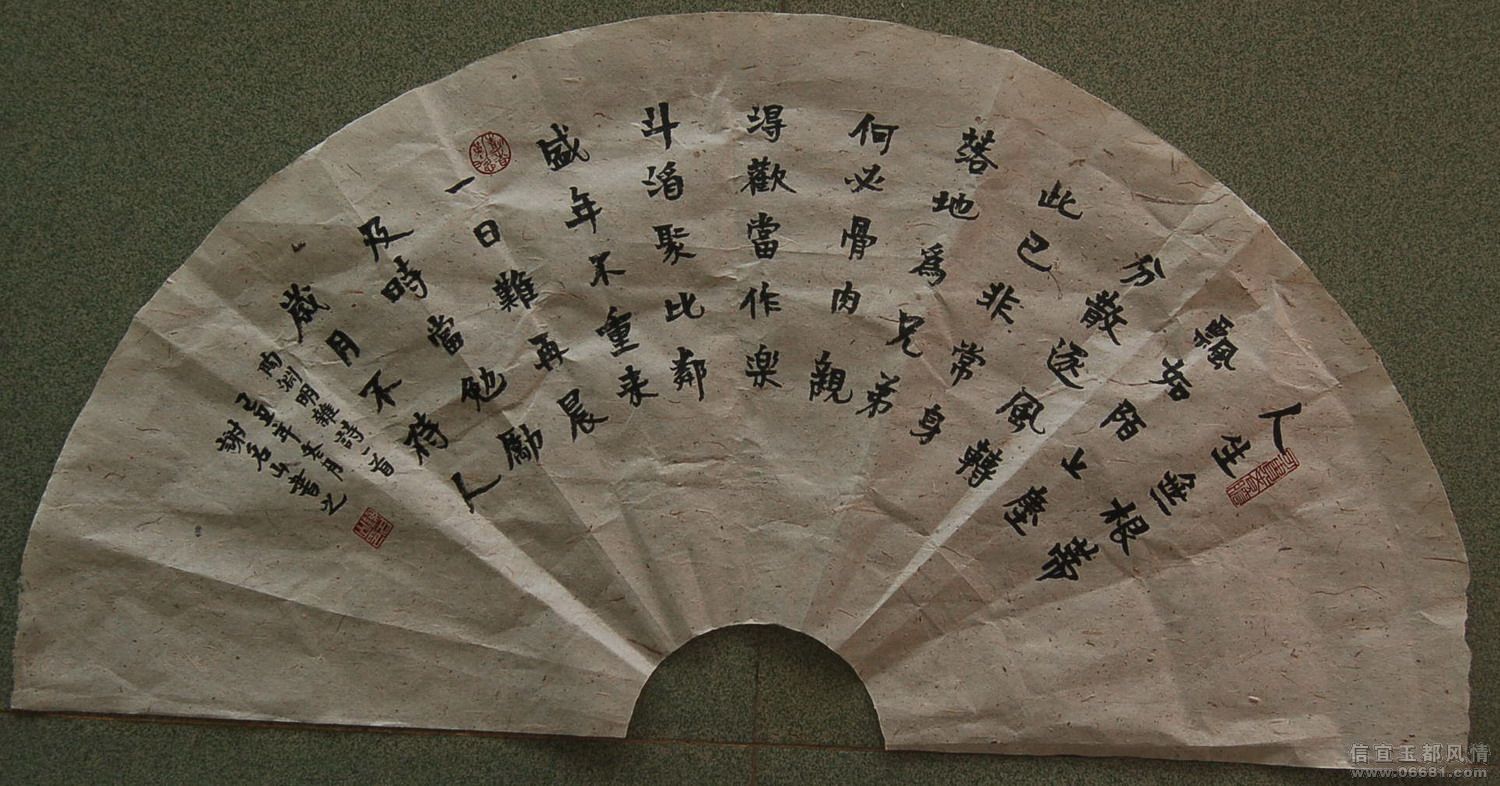 人生無根蒂
飄如陌上塵
分散逐風轉
此已非常身
落地爲兄弟
何必骨肉親
得歡當作楽
斗酒聚比鄰
盛年不重来
一日難再晨
及時當勉勵
歲月不待人
陶渊明雜詩一首
己丑年冬月
謝名山書之
信宜玉都风情
www.06681.com